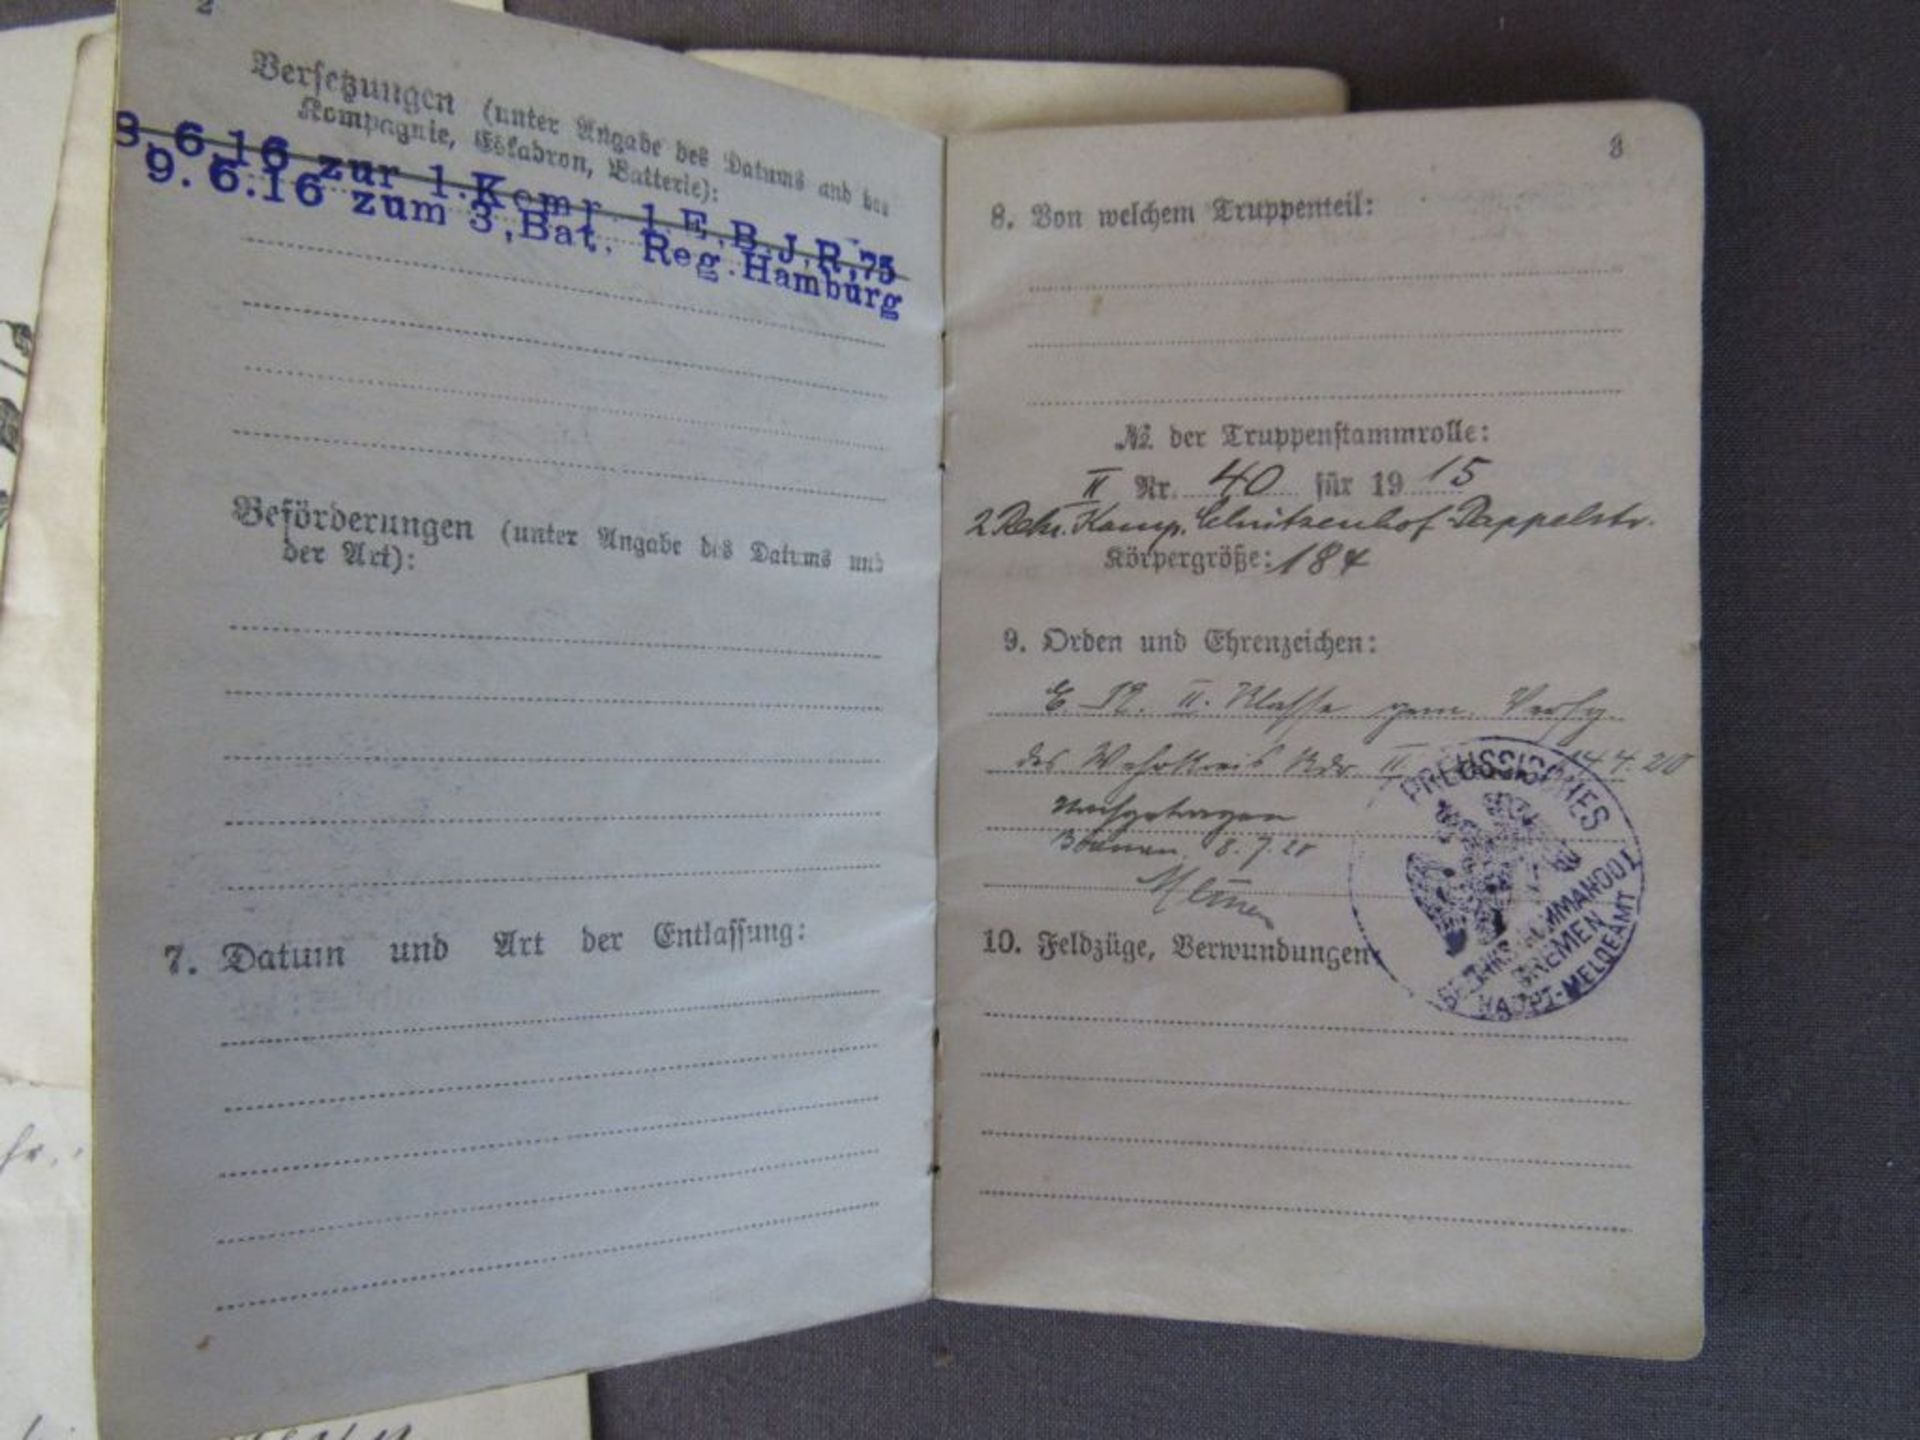 2
Versetzungen (unter Angabe des Datums und der
Kompagnie, Eskadron, Batterie):
8.6.16 zur 1.Komp. 1.E.B.J.R.75
9.6.16 zum 3,Bat. Reg.Hamburg
Beförderungen (unter Angabe des Datums und
der Art):
7. Datum und Art der Entlassung:
3
8. Von welchem Truppenteil:
№ der Truppenstammrolle:
II Nr. 40 für 1915
2 Rekr. Komp. Schützenhof
Körpergröße: 184
9. Orden und Ehrenzeichen:
E. II. Klasse gem. Verfg.
des Wehrkreis Kdo. II 14 7. 20
Nachgetragen
Bremen, 8.7.20
PREUSSISCHES
BEZIRKSKOMMANDO I
BREMEN
HAUPT-MELDEAMT
10. Feldzüge, Verwundungen: